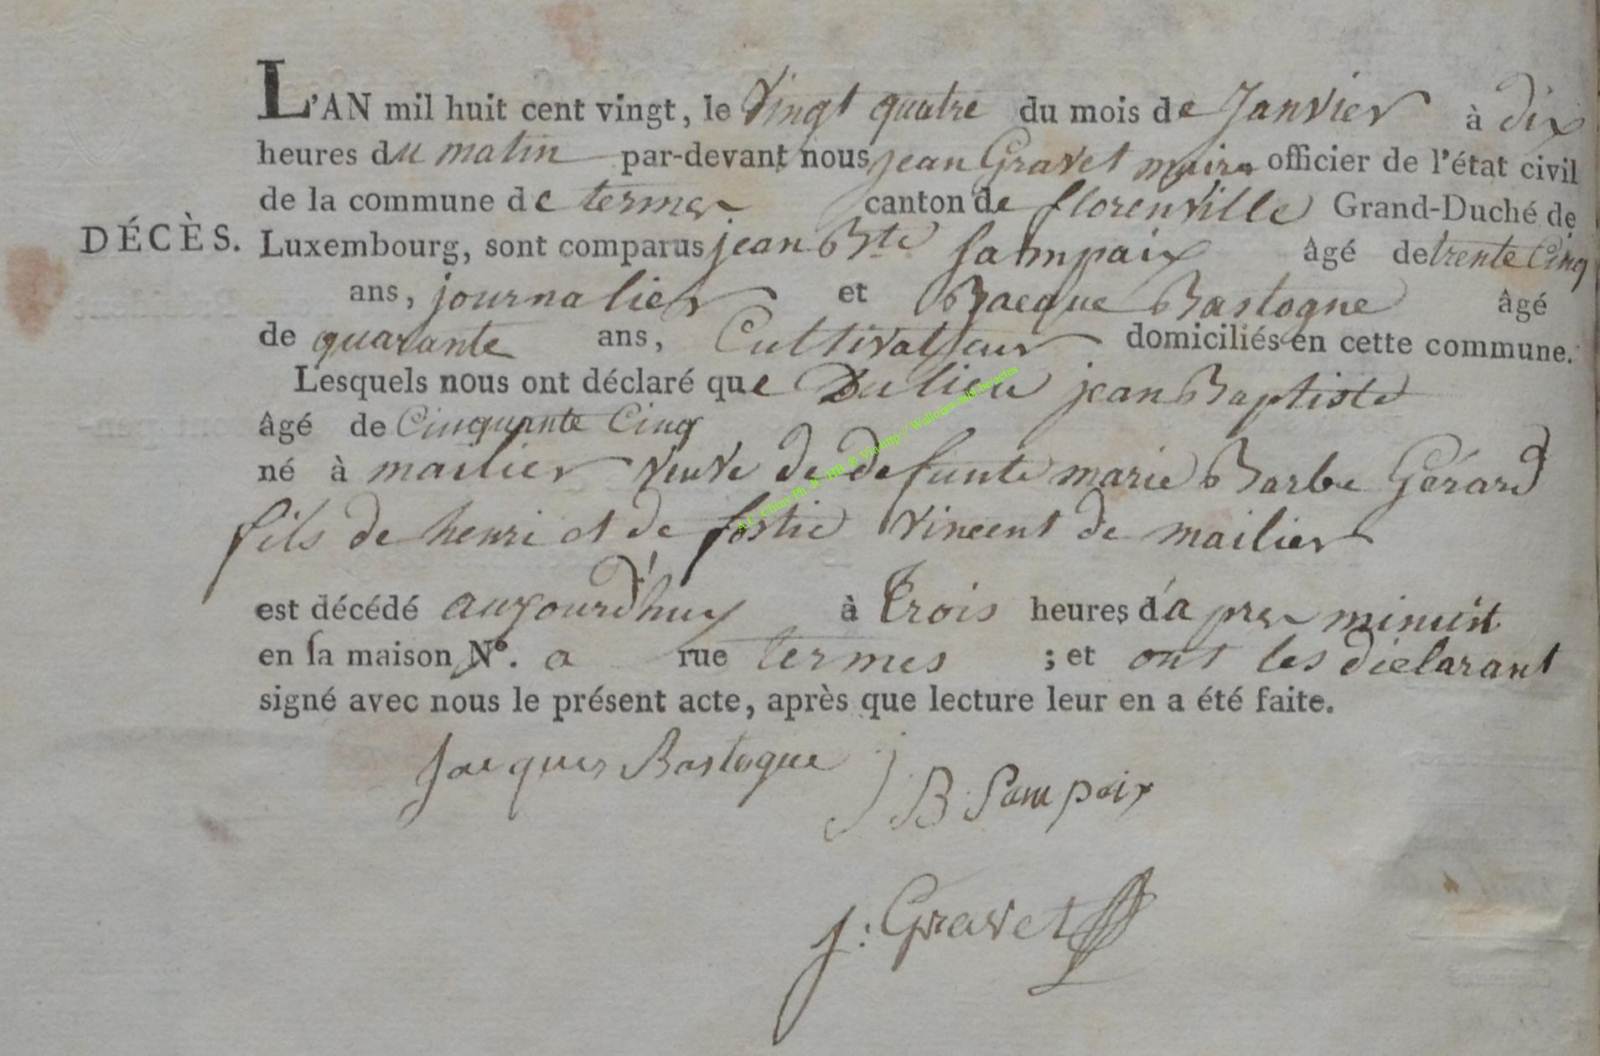 L'AN mil huit cent vingt, le Vingt quatre du mois de Janvier à dix
heures du matin par-devant nous jean Gravet maire officier de l'état civil
de la commune de termes canton de florenville Grand-Duché de
DÉCÈS. Luxembourg, sont comparus jean Bte Sampaix âgé de trente Cinq
ans, journalier et Jacque Bastogne âgé
de quarante ans, Cultivateur domiciliés en cette commune.
Lesquels nous ont déclaré que Dulieu jean Baptiste
âgé de Cinquante Cinq
né à mailier veuve de defunte marie Barbe Gérard
fils de henri et de fostie vincent de mailier
est décédé aujourd'huy à trois heures d'a pres minuit
en sa maison N°. a rue termes ; et ont les diclarant
signé avec nous le présent acte, après que lecture leur en a été faite.
Jacques Bastogne J B Sampaix
j: Gravet